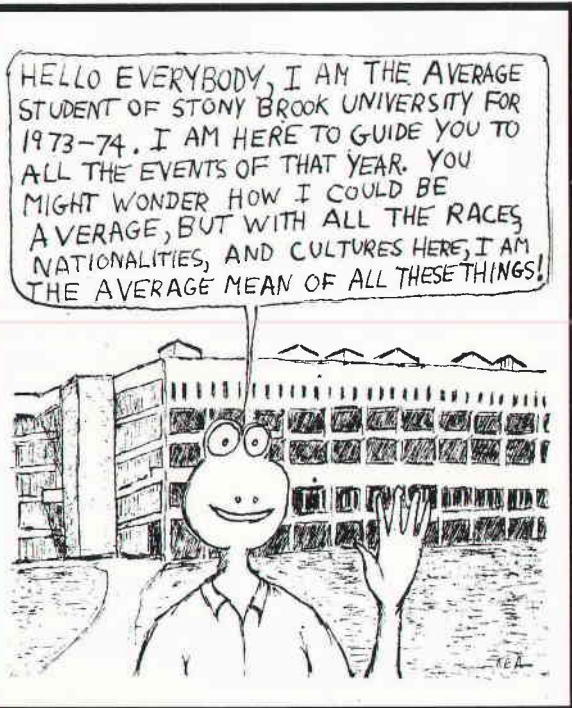 HELLO EVERYBODY, I AM THE AVERAGE
STUDENT OF STONY BROOK UNIVERSITY FOR
1973-74. I AM HERE TO GUIDE YOU TO
ALL THE EVENTS OF THAT YEAR. YOU
MIGHT WONDER HOW I COULD BE
AVERAGE, BUT WITH ALL THE RACES,
NATIONALITIES, AND CULTURES HERE, I AM
THE AVERAGE MEAN OF ALL THESE THINGS!
KEA